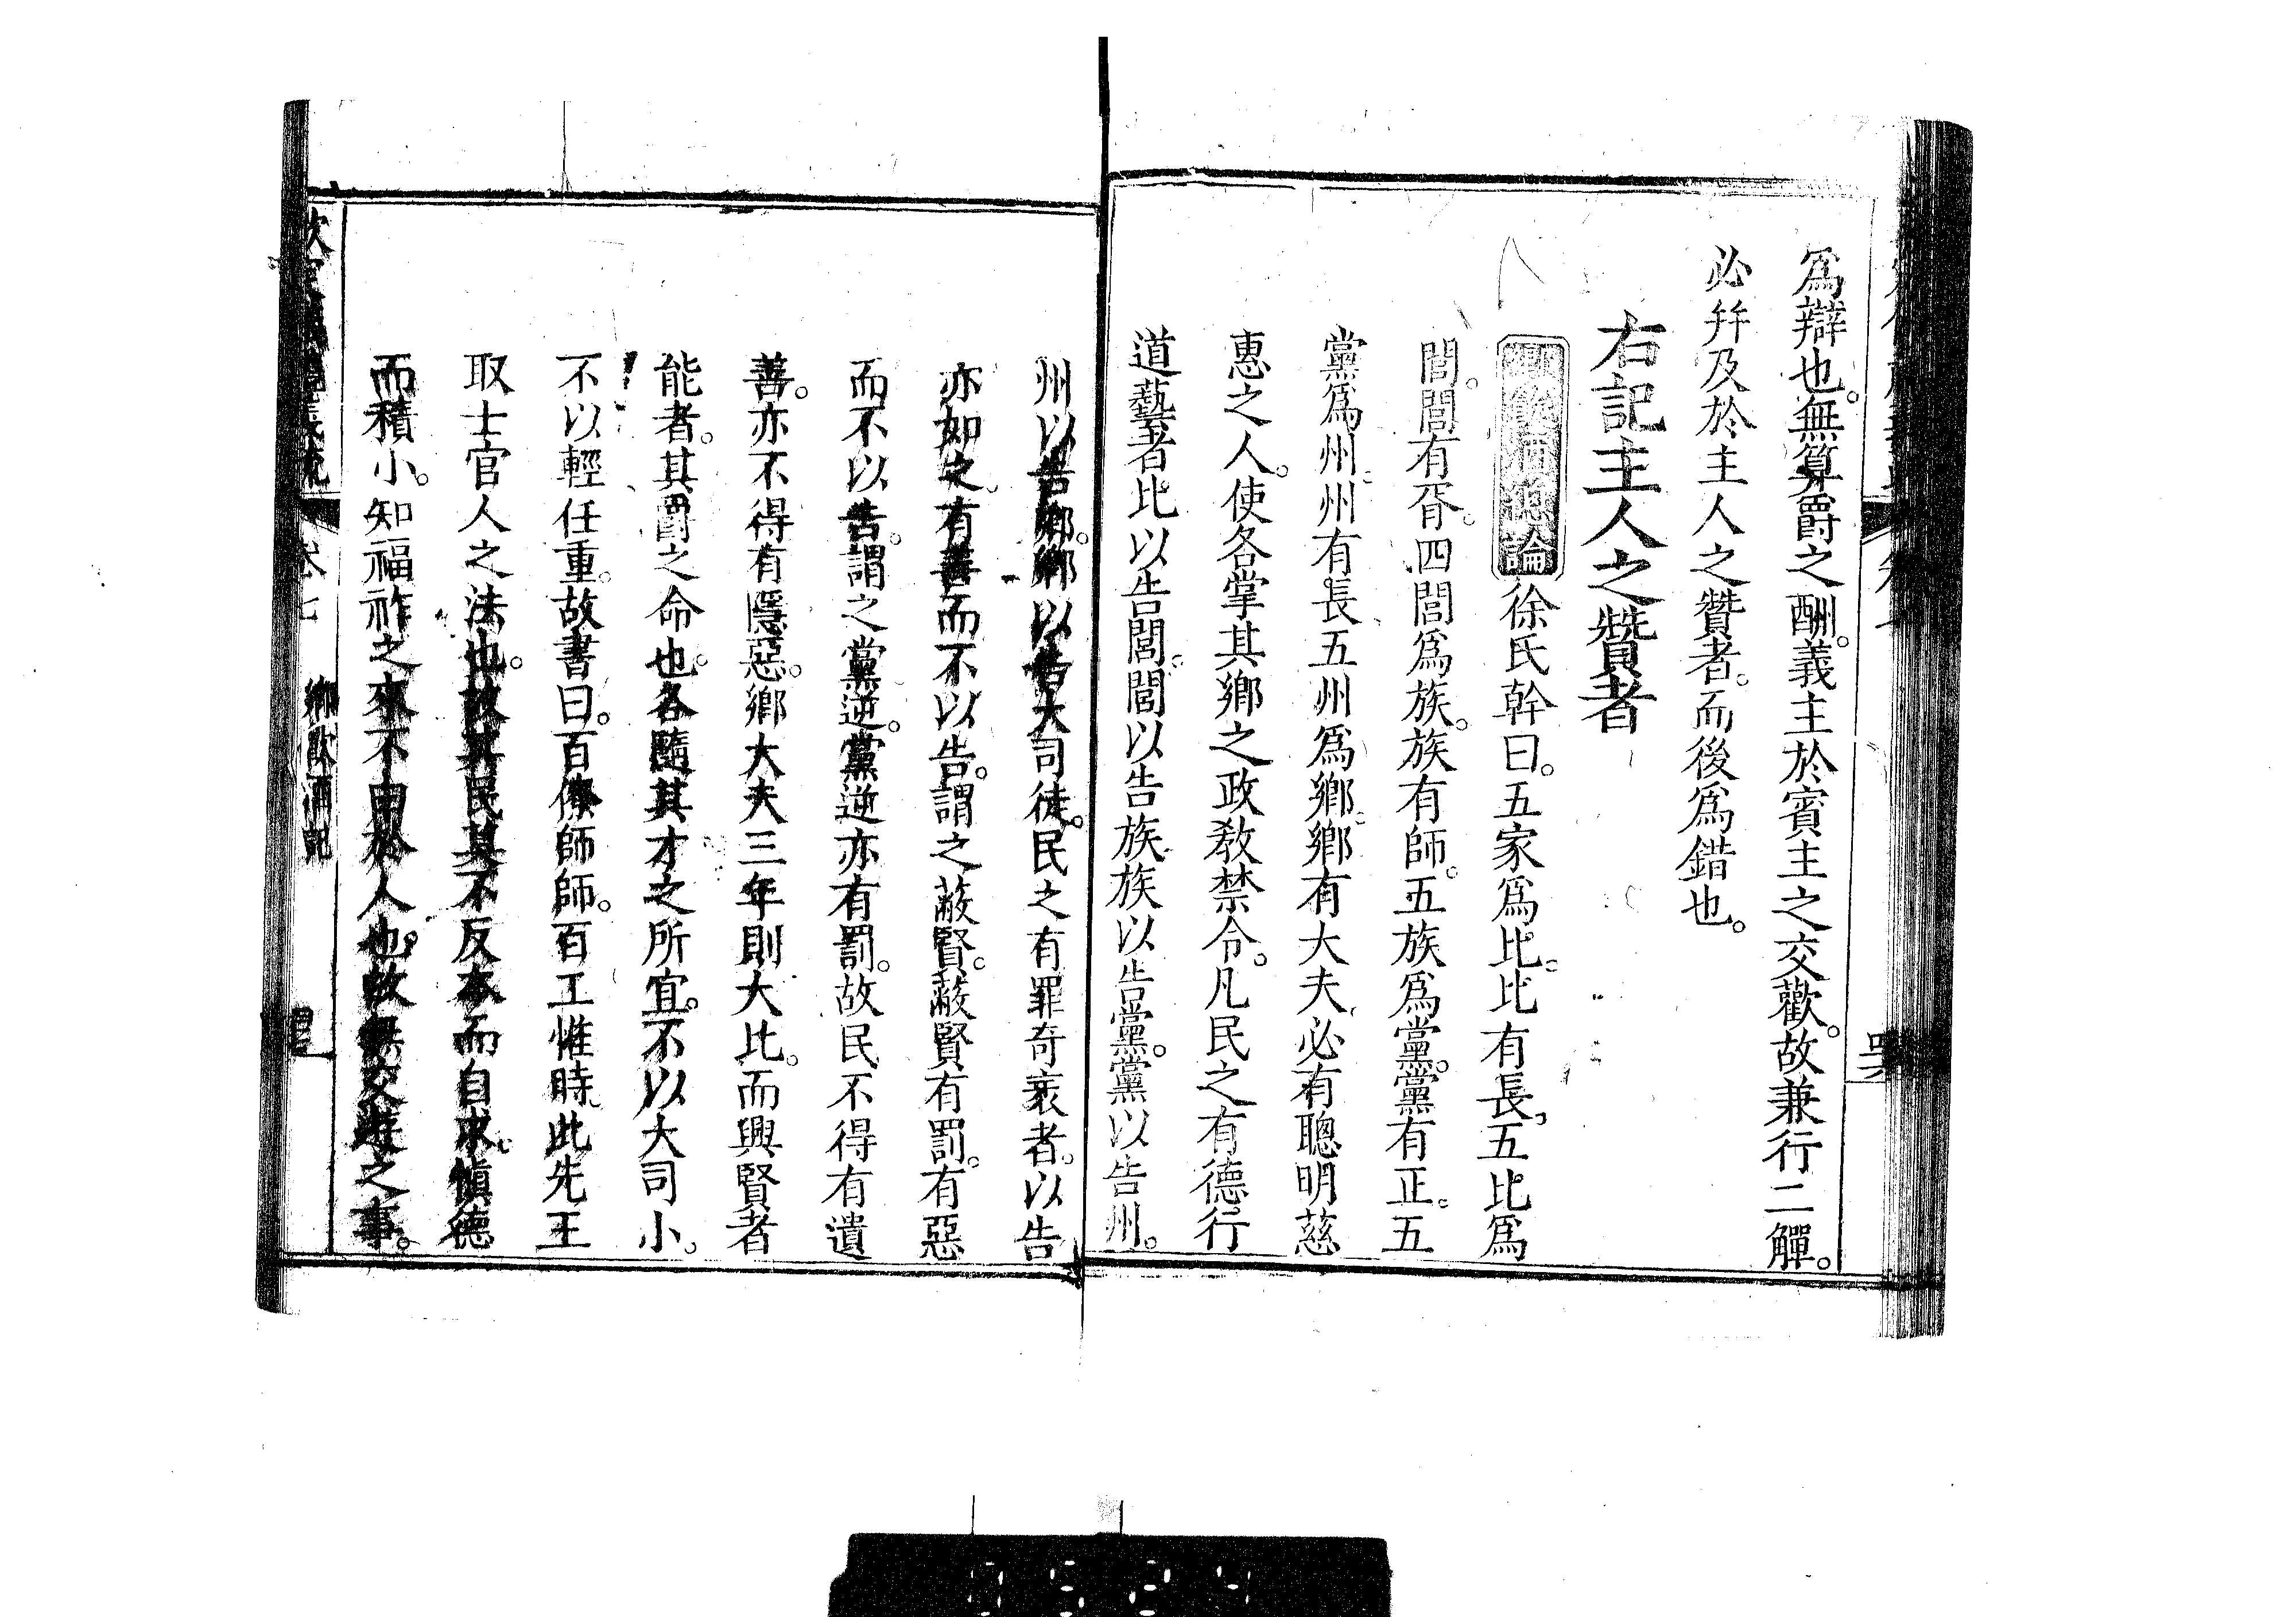 爲辯也。無算爵之酬。義主於賓主之交歡。故兼行二觶。
必幷及於主人之贊者。而後爲錯也。
右記主人之贊者
鄉飲酒總論 徐氏幹曰。五家爲比。比有長。五比爲
閭。閭有胥。四閭爲族。族有師。五族爲黨。黨有正。五
黨爲州。州有長。五州爲鄉。鄉有大夫。必有聰明慈
惠之人。使各掌其鄉之政敎禁令。凡民之有德行
道藝者。比以告閭。閭以告族。族以告黨。黨以告州。
州以告鄉。鄉以告大司徒。民之有罪奇衺者。以告
亦如之。有善而不以告。謂之蔽賢。蔽賢有罰。有惡
而不以告。謂之黨逆。黨逆亦有罰。故民不得有遺
善。亦不得有隱惡。鄉大夫三年則大比。而興賢者
能者。其爵之命也。各隨其才之所宜。不以大司小。
不以輕任重。故書曰。百僚師師。百工惟時。此先王
取士官人之法也。故其民莫不反本而自求。愼德
而積小。知福祚之來不由於人也。故無交遊之事。
卷七 鄉飲酒記